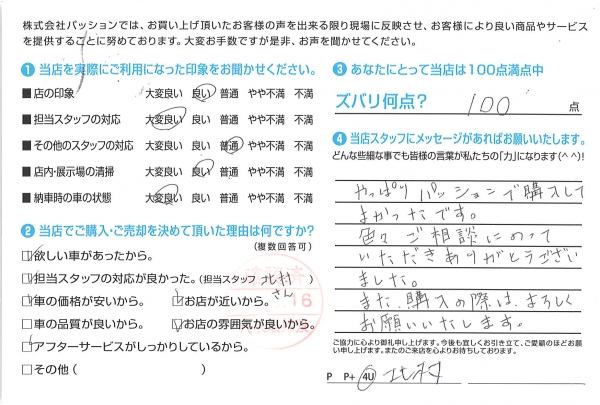 株式会社パッションでは、お買い上げ頂いたお客様の声を出来る限り現場に反映させ、お客様により良い商品やサービス
を提供することに努めております。大変お手数ですが是非、お声を聞かせてください。
① 当店を実際にご利用になった印象をお聞かせください。
■ 店の印象 大変良い 良い 普通 やや不満 不満
■ 担当スタッフの対応 大変良い 良い 普通 やや不満 不満
■ その他のスタッフの対応 大変良い 良い 普通 やや不満 不満
■ 店内・展示場の清掃 大変良い 良い 普通 やや不満 不満
■ 納車時の車の状態 大変良い 良い 普通 やや不満 不満
② 当店でご購入・ご売却を決めて頂いた理由は何ですか?
(複数回答可)
欲しい車があったから。
担当スタッフの対応が良かった。(担当スタッフ 北村さん)
車の価格が安いから。 お店が近いから。
□車の品質が良いから。 お店の雰囲気が良いから。
アフターサービスがしっかりしているから。
□その他( )
16
③ あなたにとって当店は100点満点中
ズバリ何点? 100 点
④ 当店スタッフにメッセージがあればお願いいたします。
どんな些細な事でも皆様の言葉が私たちの「力」になります(^^)!
やっぱりパッションで購入して
よかったです。
色々ご相談にのって
いただきありがとうござい
ました。
また、購入の際は、よろしく
お願いいたします。
ご協力に心より御礼申し上げます。今後も宜しくお引き立て、ご愛顧のほどお願
い申し上げます。またのご来店を心よりお待ちしております。
P P+ 4U 北村